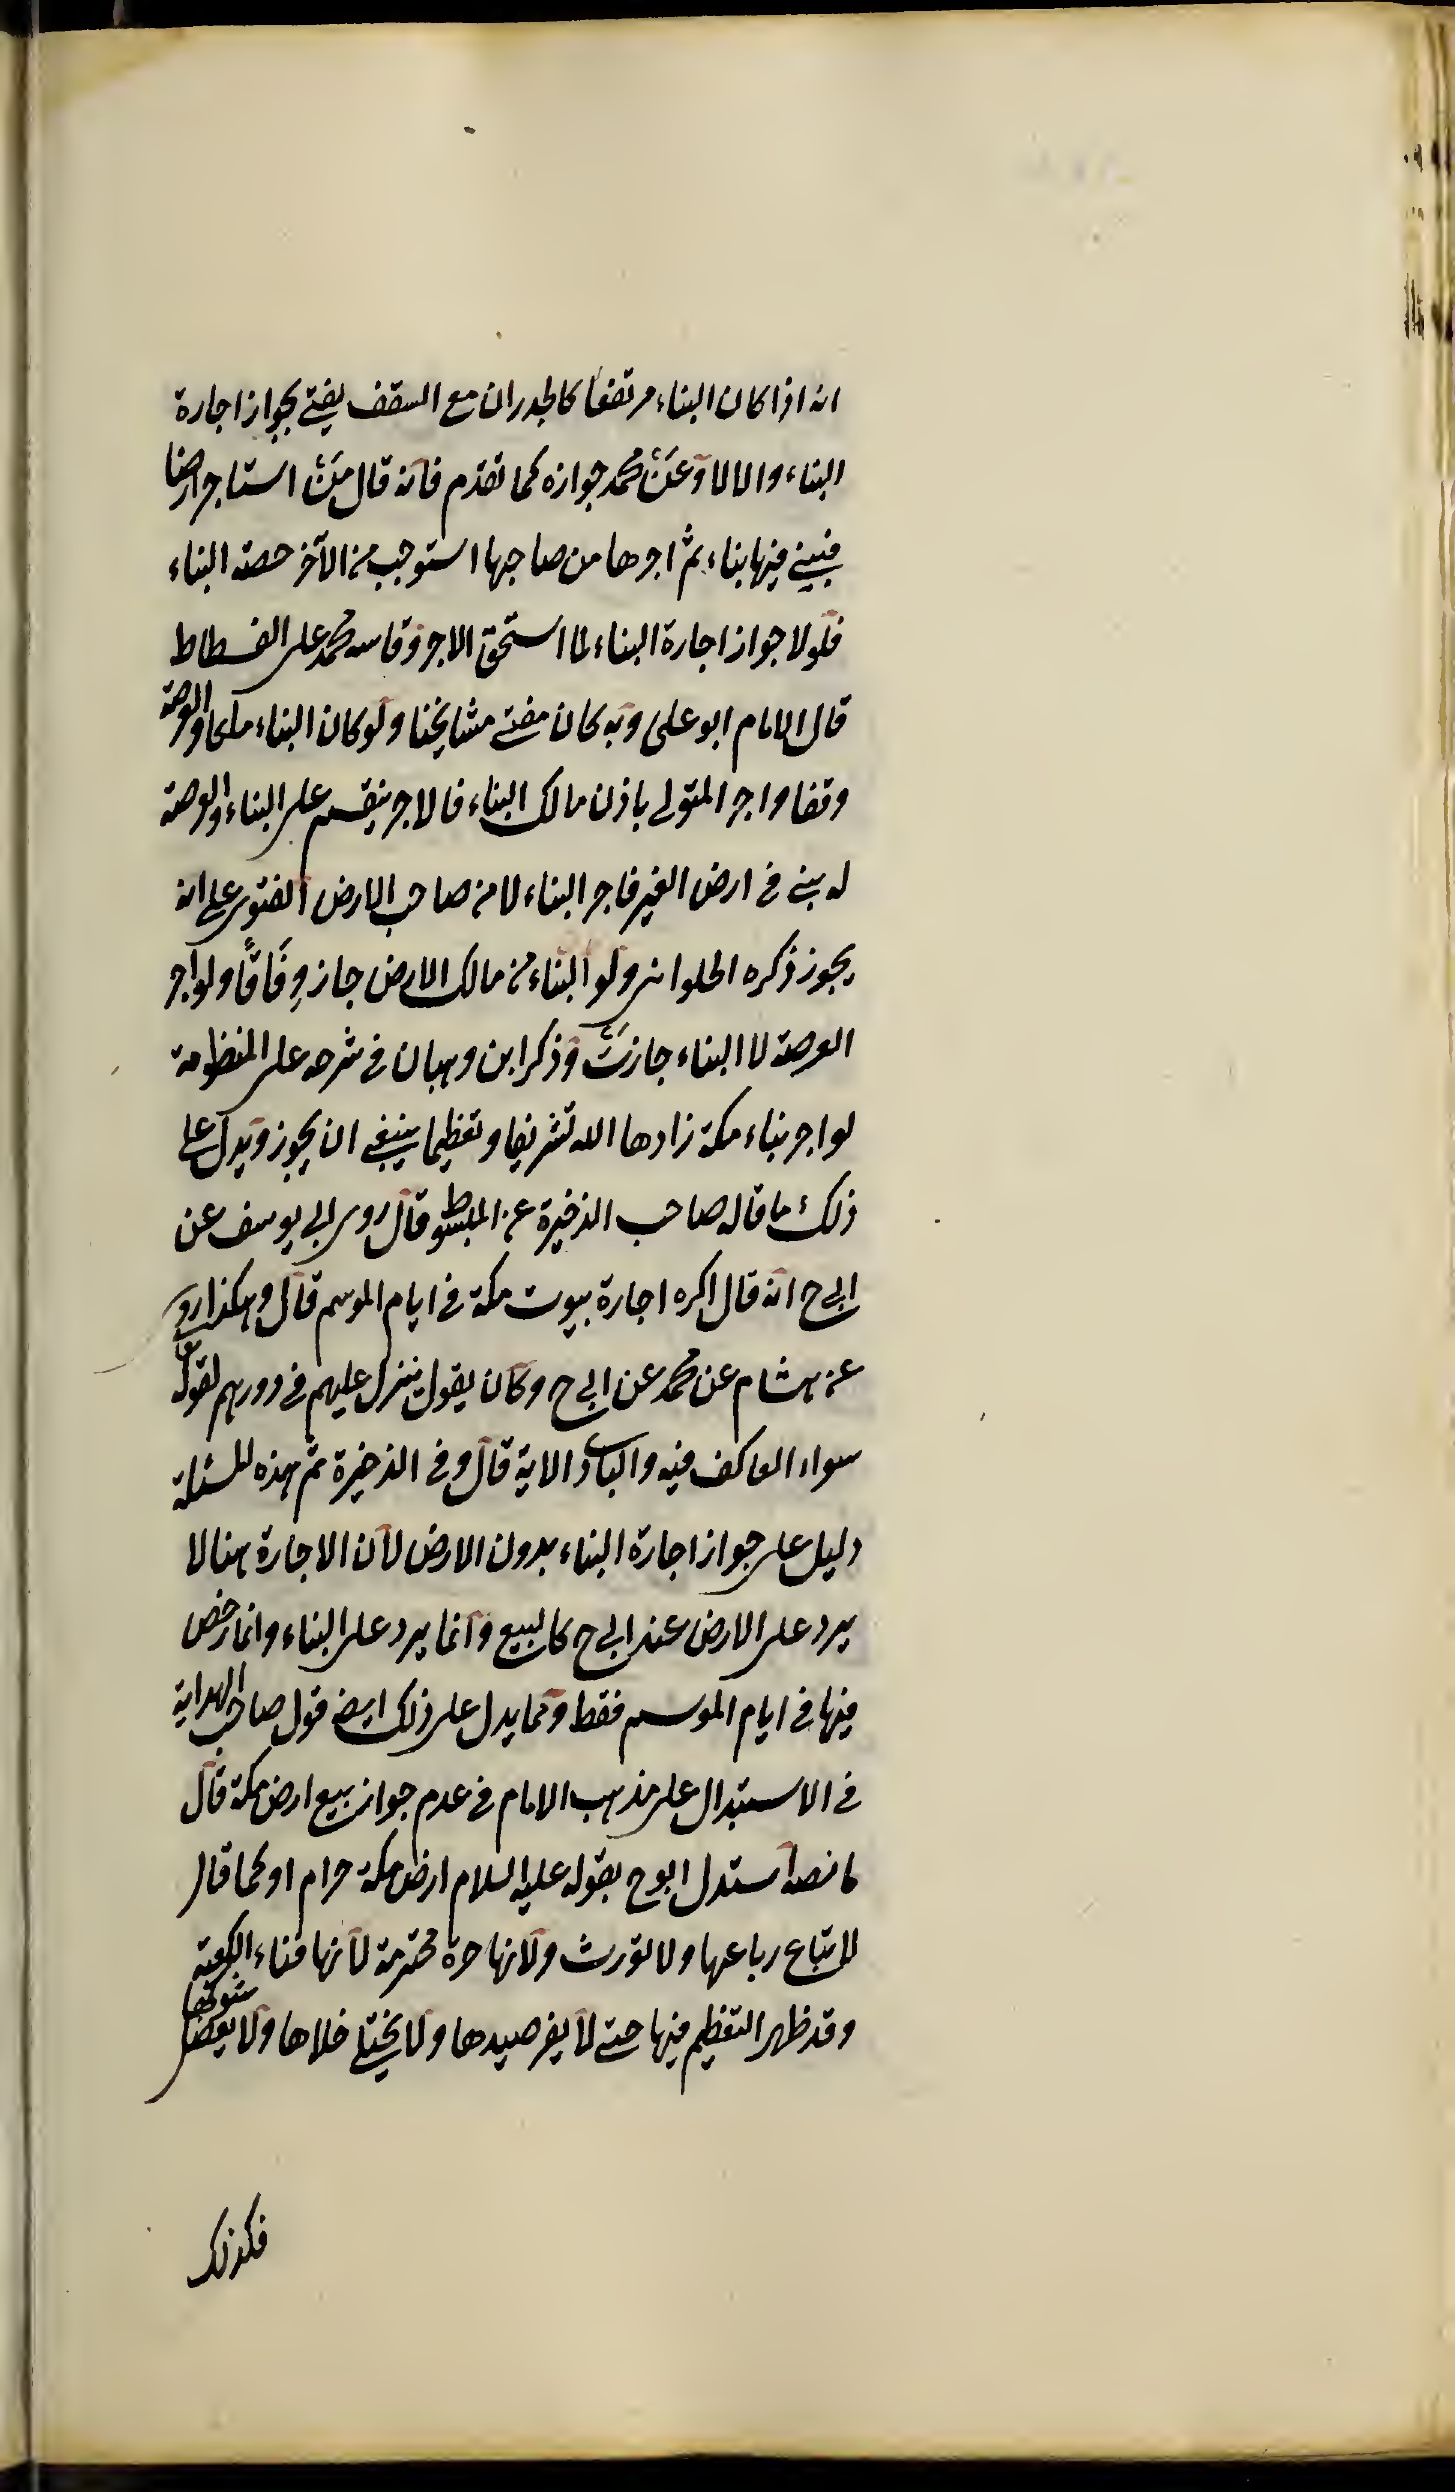 انه اذا كان البناء مرتفعا كالجدران مع السقف يفتى بجواز اجارة
البناء والا لا وعن محمد جوازه كما تقدم فانه قال من استاجر ارضا
فبنى فيها بناء ثم اجرها من صاحبها استوجب من الآخر حصة البناء
فلولا جواز اجارة البناء لما استحق الاجر وقاسه محمد على الفسطاط
قال الامام ابو على وبه كان يفتى مشايخنا ولو كان البناء ملكا والعرصة
وقفا واجر المتولى باذن مالك البناء فالاجر ينقسم على البناء والعرصة
له بنى فى ارض الغير فاجر البناء لا من صاحب الارض الفتوى على انه
يجوز ذكره الحلوانى ولو البناء من مالك الارض جاز وفاقا ولو اجر
العرصة لا البناء جازت وذكر ابن وهبان فى شرحه على المنظومة
لو اجر بناء مكة زادها الله تشريفا وتعظيما ينبغى ان يجوز ويدل على
ذلك ما قاله صاحب الذخيرة عن المبسوط قال روى ابى يوسف عن
ابى ح انه قال اكره اجارة بيوت مكة فى ايام الموسم قال وهكذا روى
عن هشام عن محمد عن ابى ح وكان يقول ينزل عليهم فى دورهم لقوله تعا
سواء العاكف فيه والباد الاية قال وفى الذخيرة ثم هذه المسئلة
دليل على جواز اجارة البناء بدون الارض لان الاجارة هنا لا
يرد على الارض عند ابى ح كالبيع وانما يرد على البناء وانما رخص
فيها فى ايام الموسم فقط ومما يدل على ذلك ايضا قول صاحب الهداية
فى الاستبدال على مذهب الامام فى عدم جواز بيع ارض مكة قال
ما نصه استدل ابو ح بقوله عليه السلام ارض مكة حرام او كما قال
لا تباع رباعها ولا تورث ولانها حرة محترمة لانها فناء الكعبة
وقد ظهر التعظيم فيها حتى لا ينفر صيدها ولا يختلى خلاها ولا يعضد شوكها
فكذلك